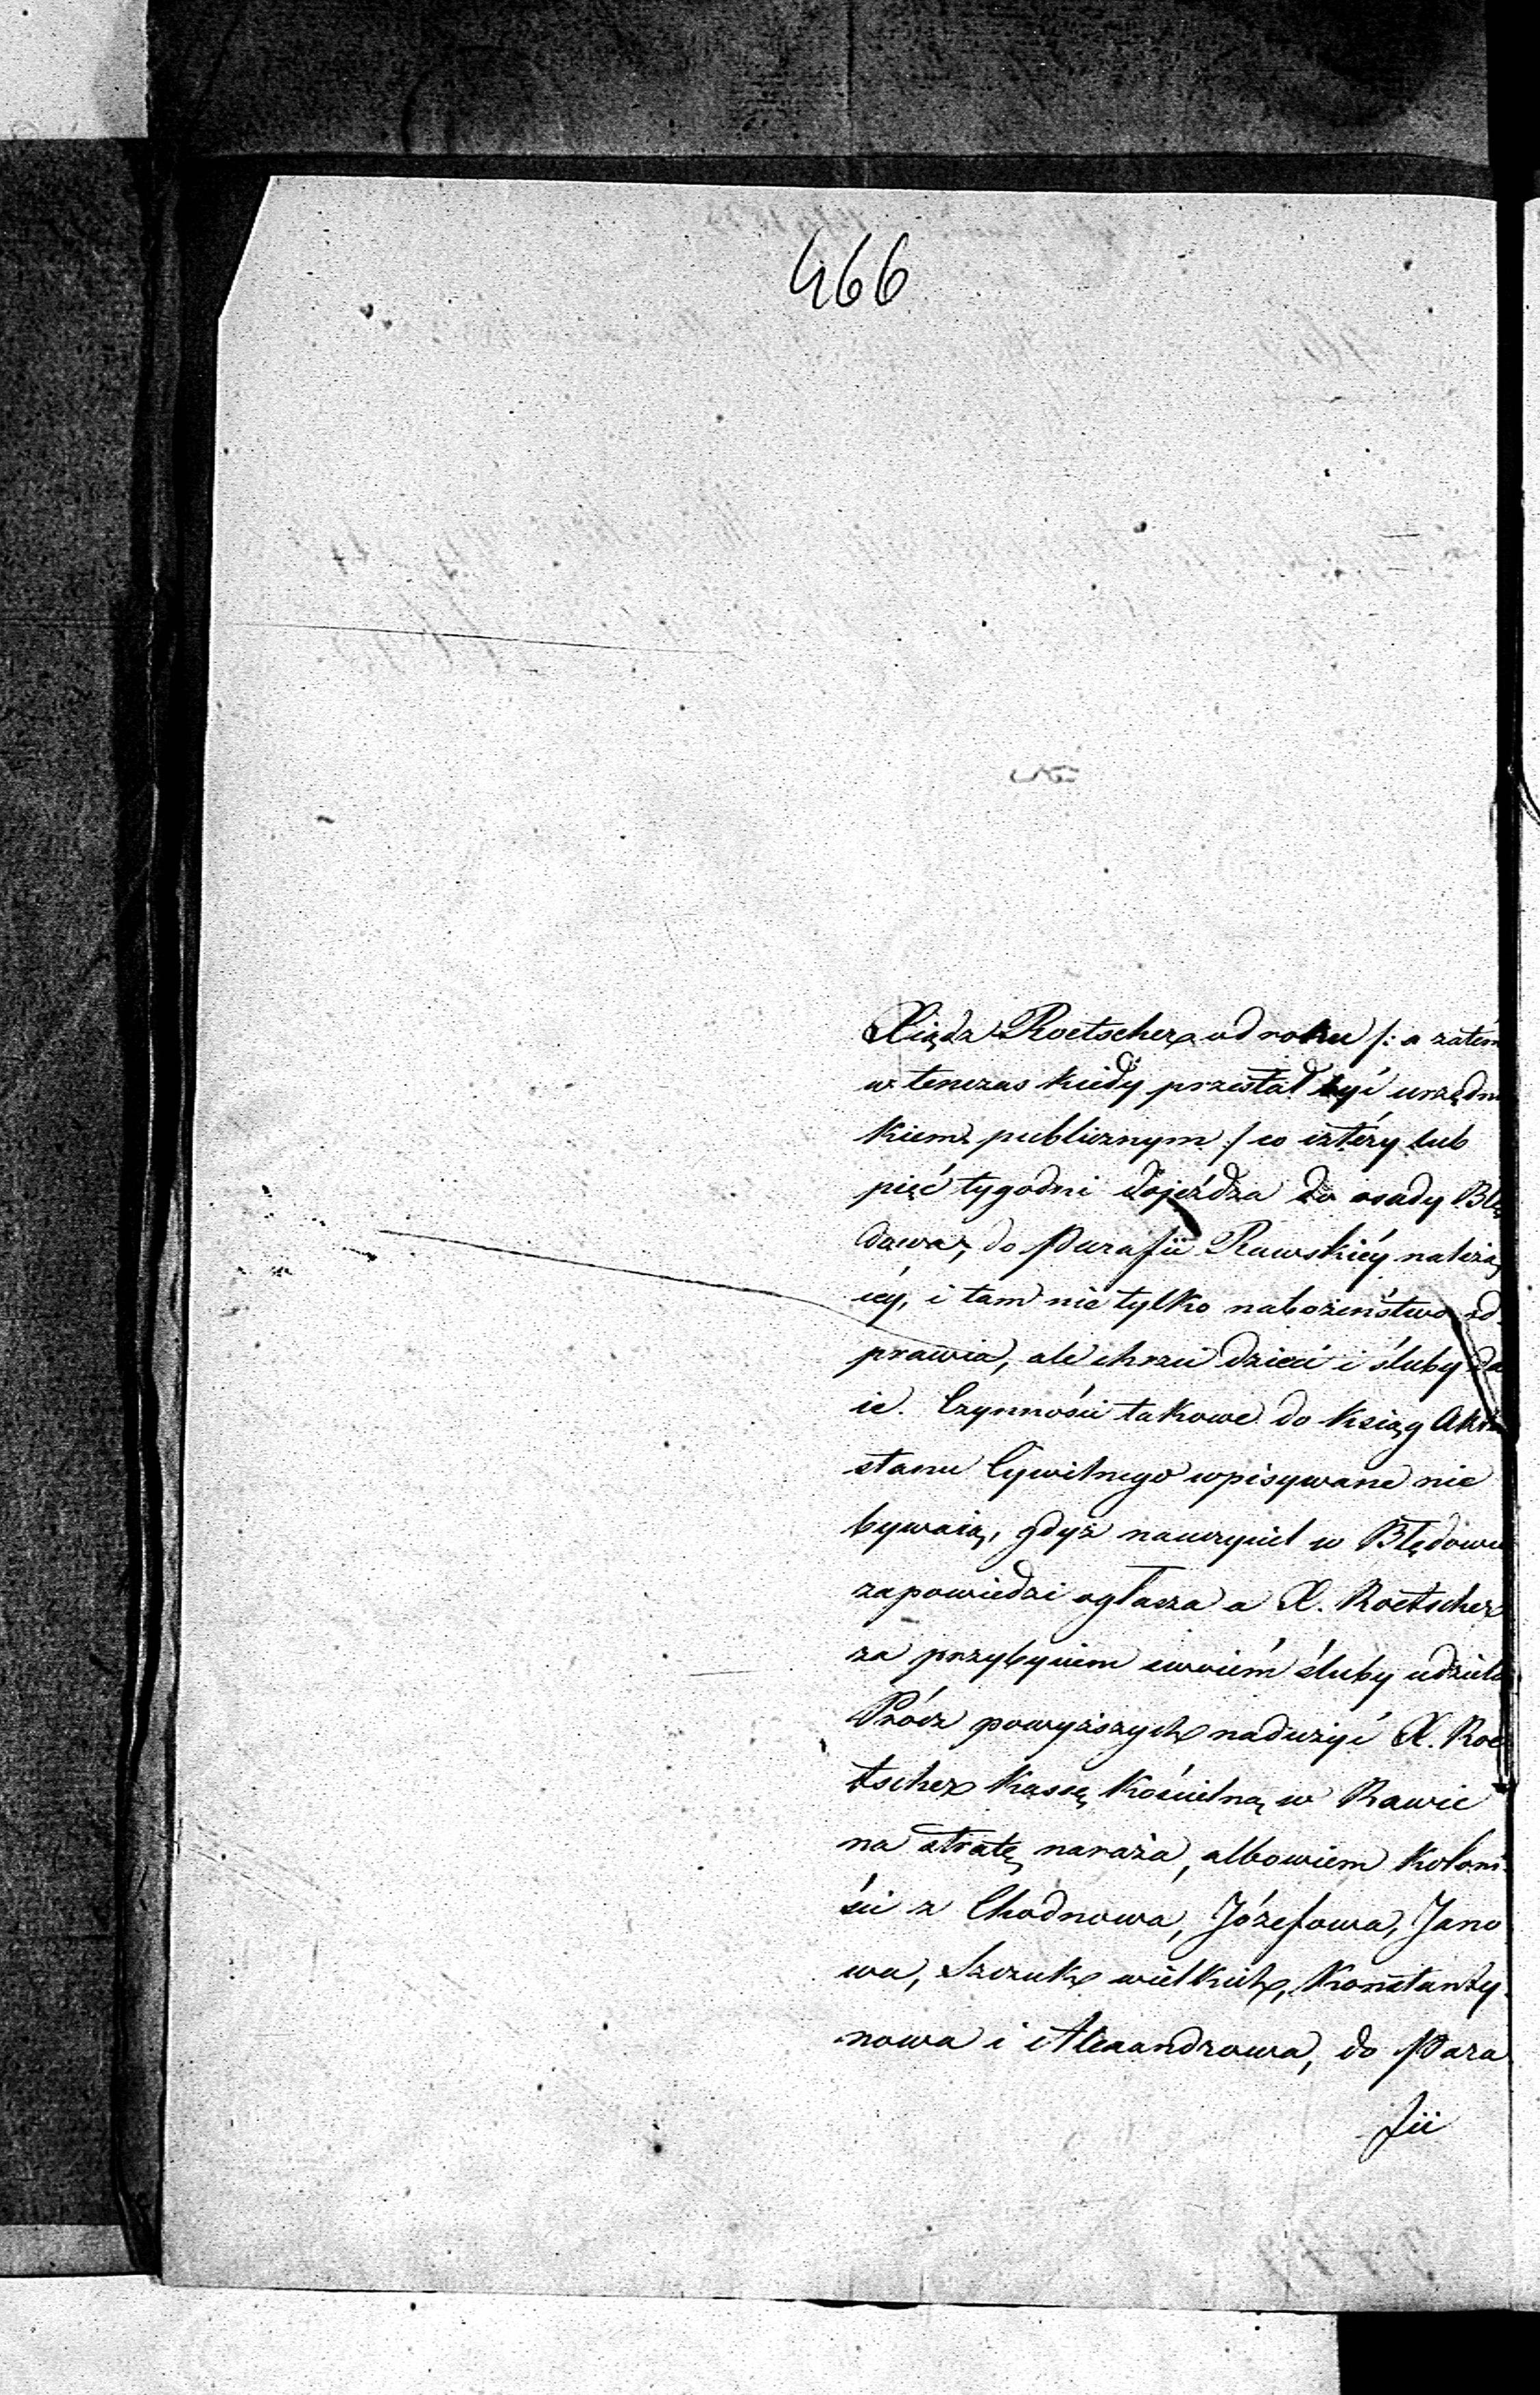 466
Xiądz Roetscher od roku /: a zatém
w tenczas kiedy przestał być urzędni
kiem publicznym / co cztéry lub
pięć tygodni dojeżdża do osady Błę
dowa, do Parafii Rawskiéy należą
céy, i tam nie tylko nabożeństwo od
prawia, ale chrzci dzieci i śluby da
ie. Czynności takowe do Ksiąg Aktów
stanu Cywilnego wpisywane nie
bywaią, gdyż nauczyciel w Błędowie
zapowiedzi ogłasza a X. Roetscher
za przybyciem swoiém śluby udziela
Prócz powyższych nadużyć X. Roe
tscher Kassę Kościelną w Rawie
na stratę naraża, albowiem Koloni
ści z Chodnowa, Józefowa, Jano
wa, Szczuk wielkich, Konstanty
nowa i Alexandrowa, do Para
fii